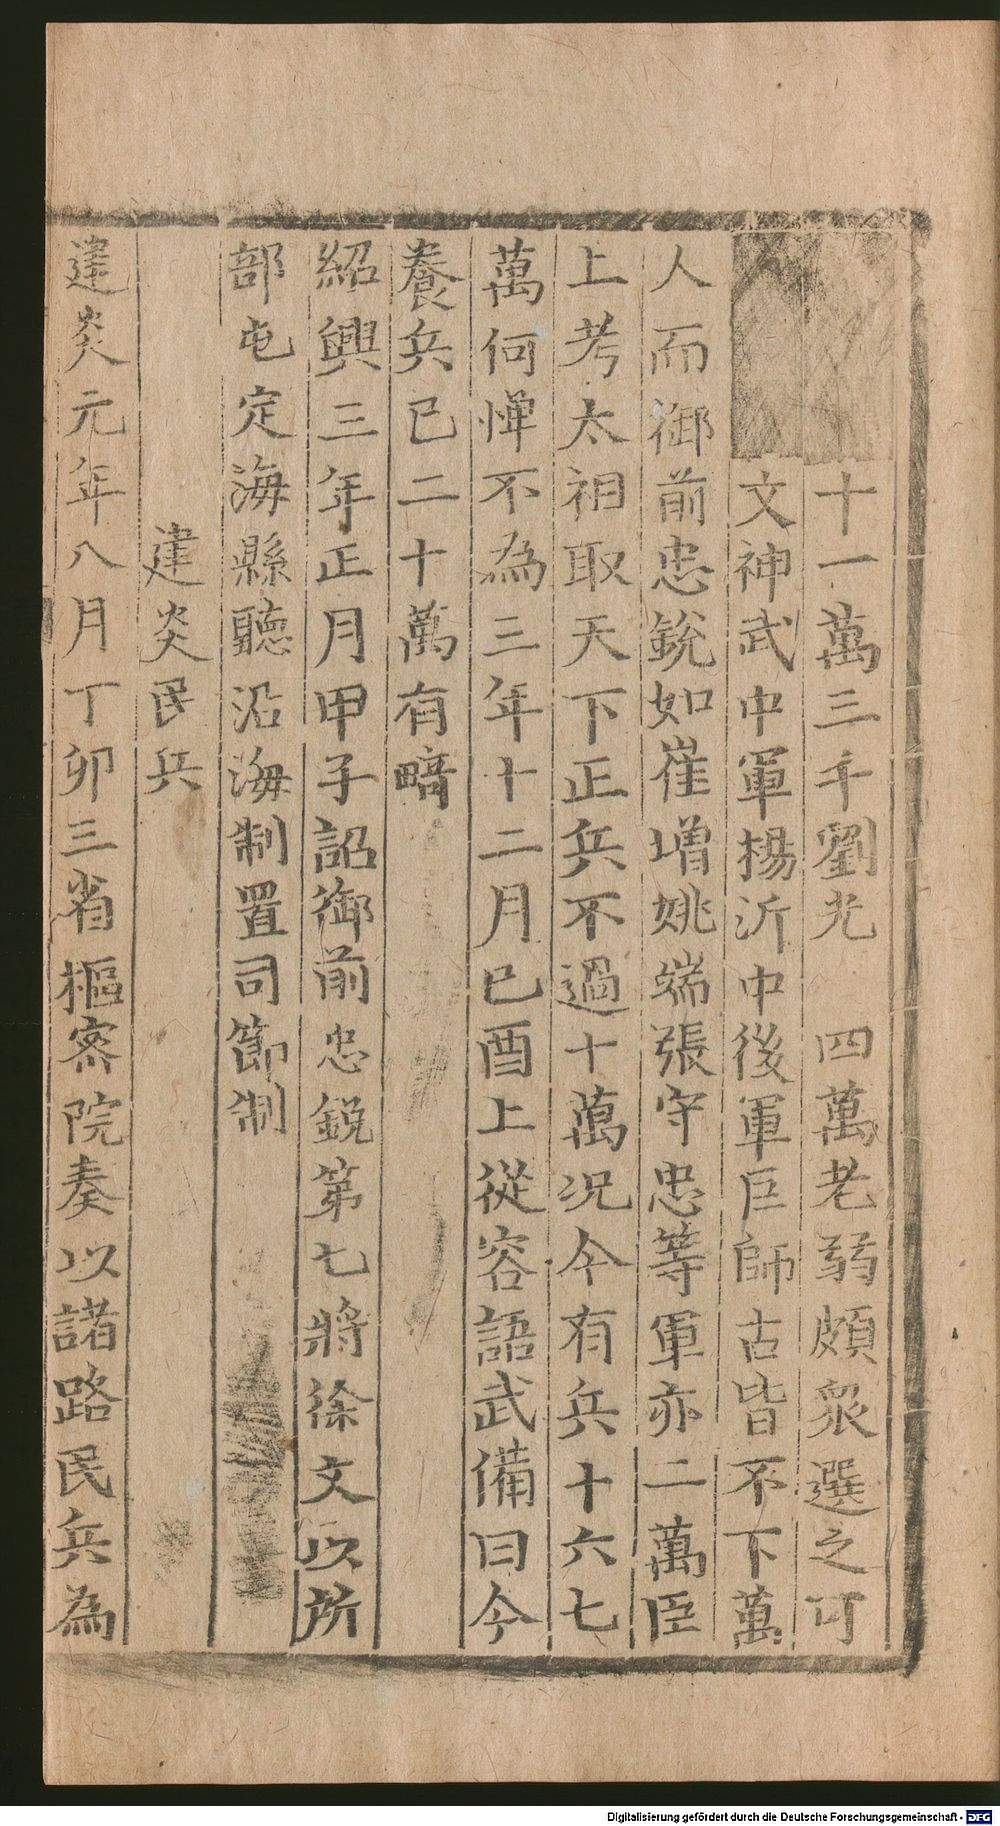 十一萬三千劉光 四萬老弱頗衆選之可
文神武中軍楊沂中後軍巨師古皆不下萬
人而御前忠銳如崔增姚端張守忠等軍亦二萬臣
上考太祖取天下正兵不過十萬况今有兵十六七
萬何憚不為三年十二月巳酉上從容語武備曰今
養兵已二十萬有畸
紹興三年正月甲子詔御前忠銳第七將徐文以所
部屯定海縣聽沿海制置司節制
建炎民兵
建炎元年八月丁卯三省樞密院奏以諸路民兵為
Digitalisierung gefördert durch die Deutsche Forschungsgemeinschaft - DFG